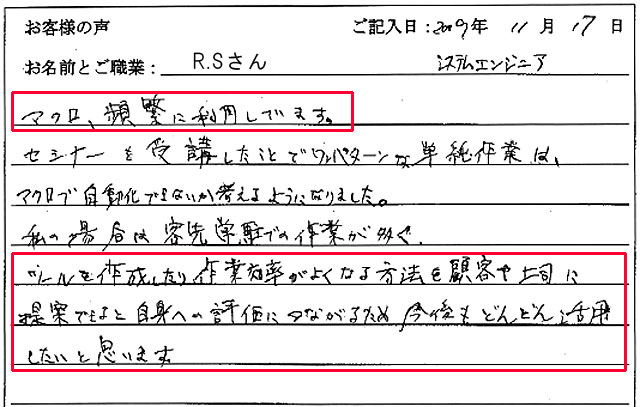 お客様の声 ご記入日：2009年 11月 17日
お名前とご職業： R.Sさん システムエンジニア
マクロ、頻繁に利用しています。
セミナーを受講したことでワンパターンな単純作業は、
マクロで自動化できないか考えるようになりました。
私の場合は客先常駐での作業が多く、
ツールを作成したり作業効率がよくなる方法を顧客や上司に
提案できると自身への評価につながるため今後もどんどん活用
したいと思います